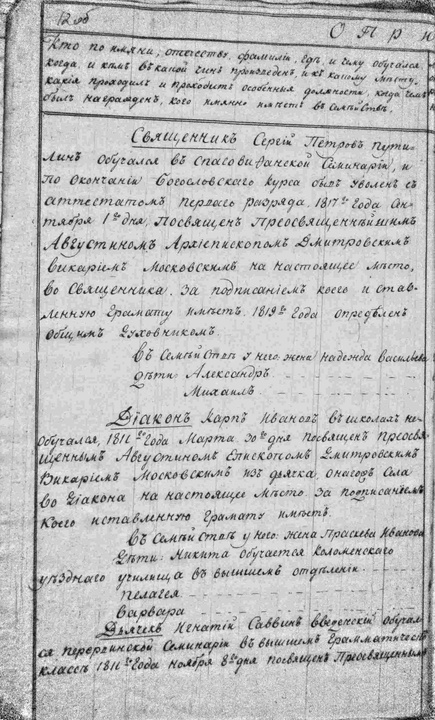 О П Р
Кто по имяни, отечеству, фамилии, где, и чему обучался
когда, и кем в какой чин произведен, и к какому месту
какия проходил и проходит особенныя должности, когда чем
был награжден, кого имянно имеет в семействе
Священникъ Сергій Петровъ Пути-
линъ обучался въ Спасовифанской Семинаріи, и
по окончаніи богословскаго курса былъ уволен съ
аттестатомъ перваго разряда 1817 года Сен-
тября 1го дня, посвященъ Преосвященнѣйшимъ
Августиномъ Архіепископомъ Дмитровскимъ
Викаріемъ Московскимъ на настоящее мѣсто,
во Священника, за подписаніемъ коего и став-
ленную грамату имѣетъ. 1819го года опредѣленъ
общимъ духовникомъ.
Въ семействѣ у него: жена Надежда Васильева
дѣти: Александръ
Михаилъ
Діаконъ Карпъ Ивановъ въ школахъ не
обучался, 1811го года Марта 30го дня посвященъ преосвя-
щеннымъ Августиномъ Епископомъ Дмитровскимъ
Викаріемъ Московскимъ изъ дьячка, села
во Діакона на настоящее мѣсто. За подписаніемъ
коего и ставленную грамату имѣетъ.
Въ семействѣ у него: жена Прасковья Иванова
Дѣти: Никита обучается Коломенскаго
уѣзднаго училища въ высшемъ отдѣленіи
Пелагея
Варвара
Дьячекъ Игнатій Саввинъ Введенскій обучал-
ся Перервинской Семинаріи въ высшемъ грамматическ
классѣ 1811го года ноября 8го дня посвященъ Преосвященнымъ